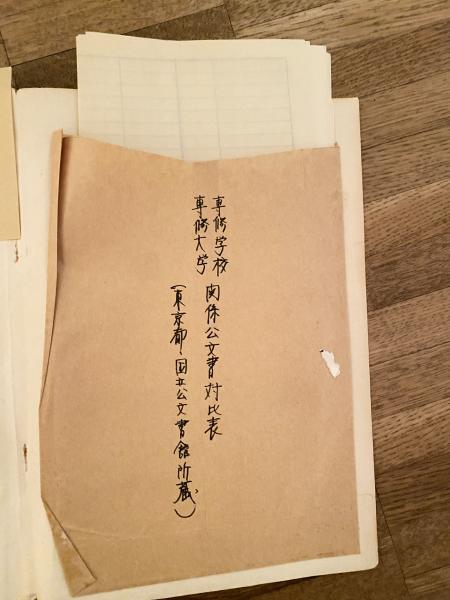 専修学校
専修大学
関係公文書対比表
(東京都・国立公文書館所蔵)